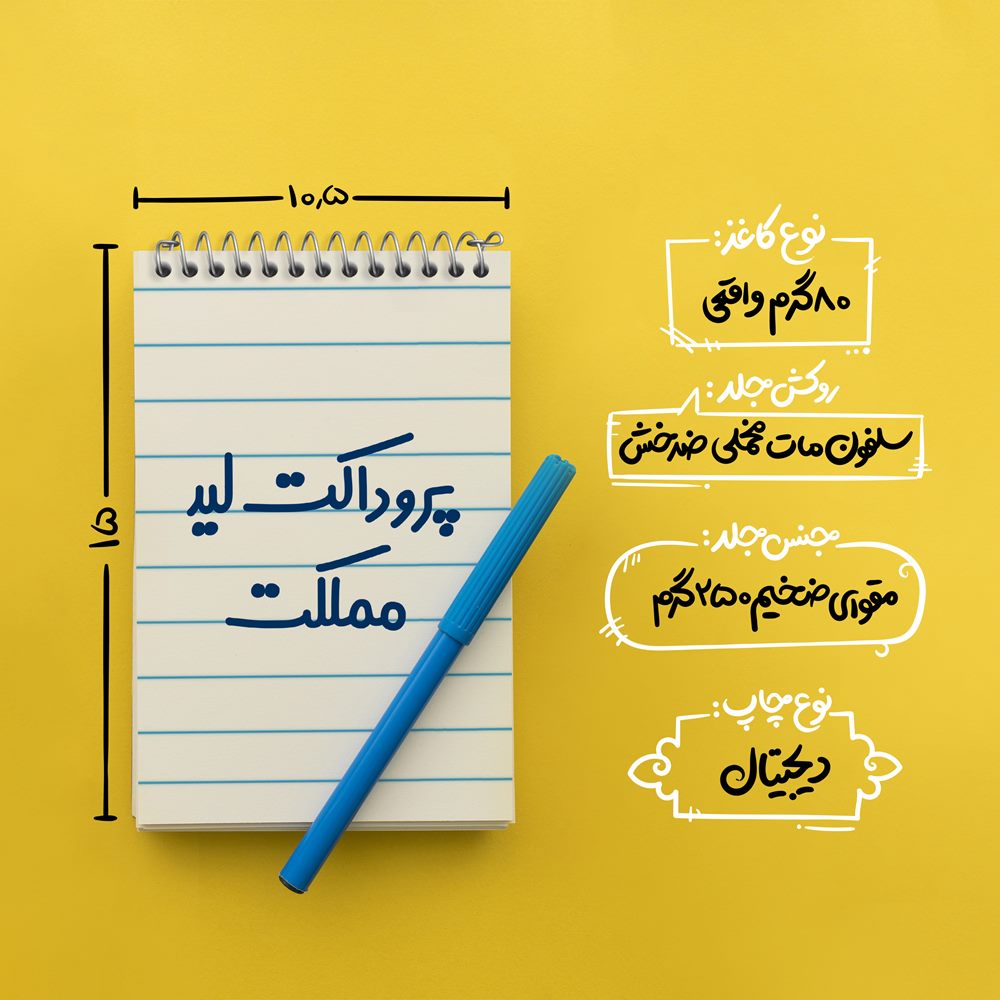 ۱۰٫۵
۱۵
پروداکت لید
مملکت
نوع کاغذ:
۸۰ گرم واقعی
روکش جلد:
سلفون مات مخملی ضدخش
جنس جلد:
مقوای ضخیم ۲۵۰ گرم
نوع چاپ:
دیجیتال